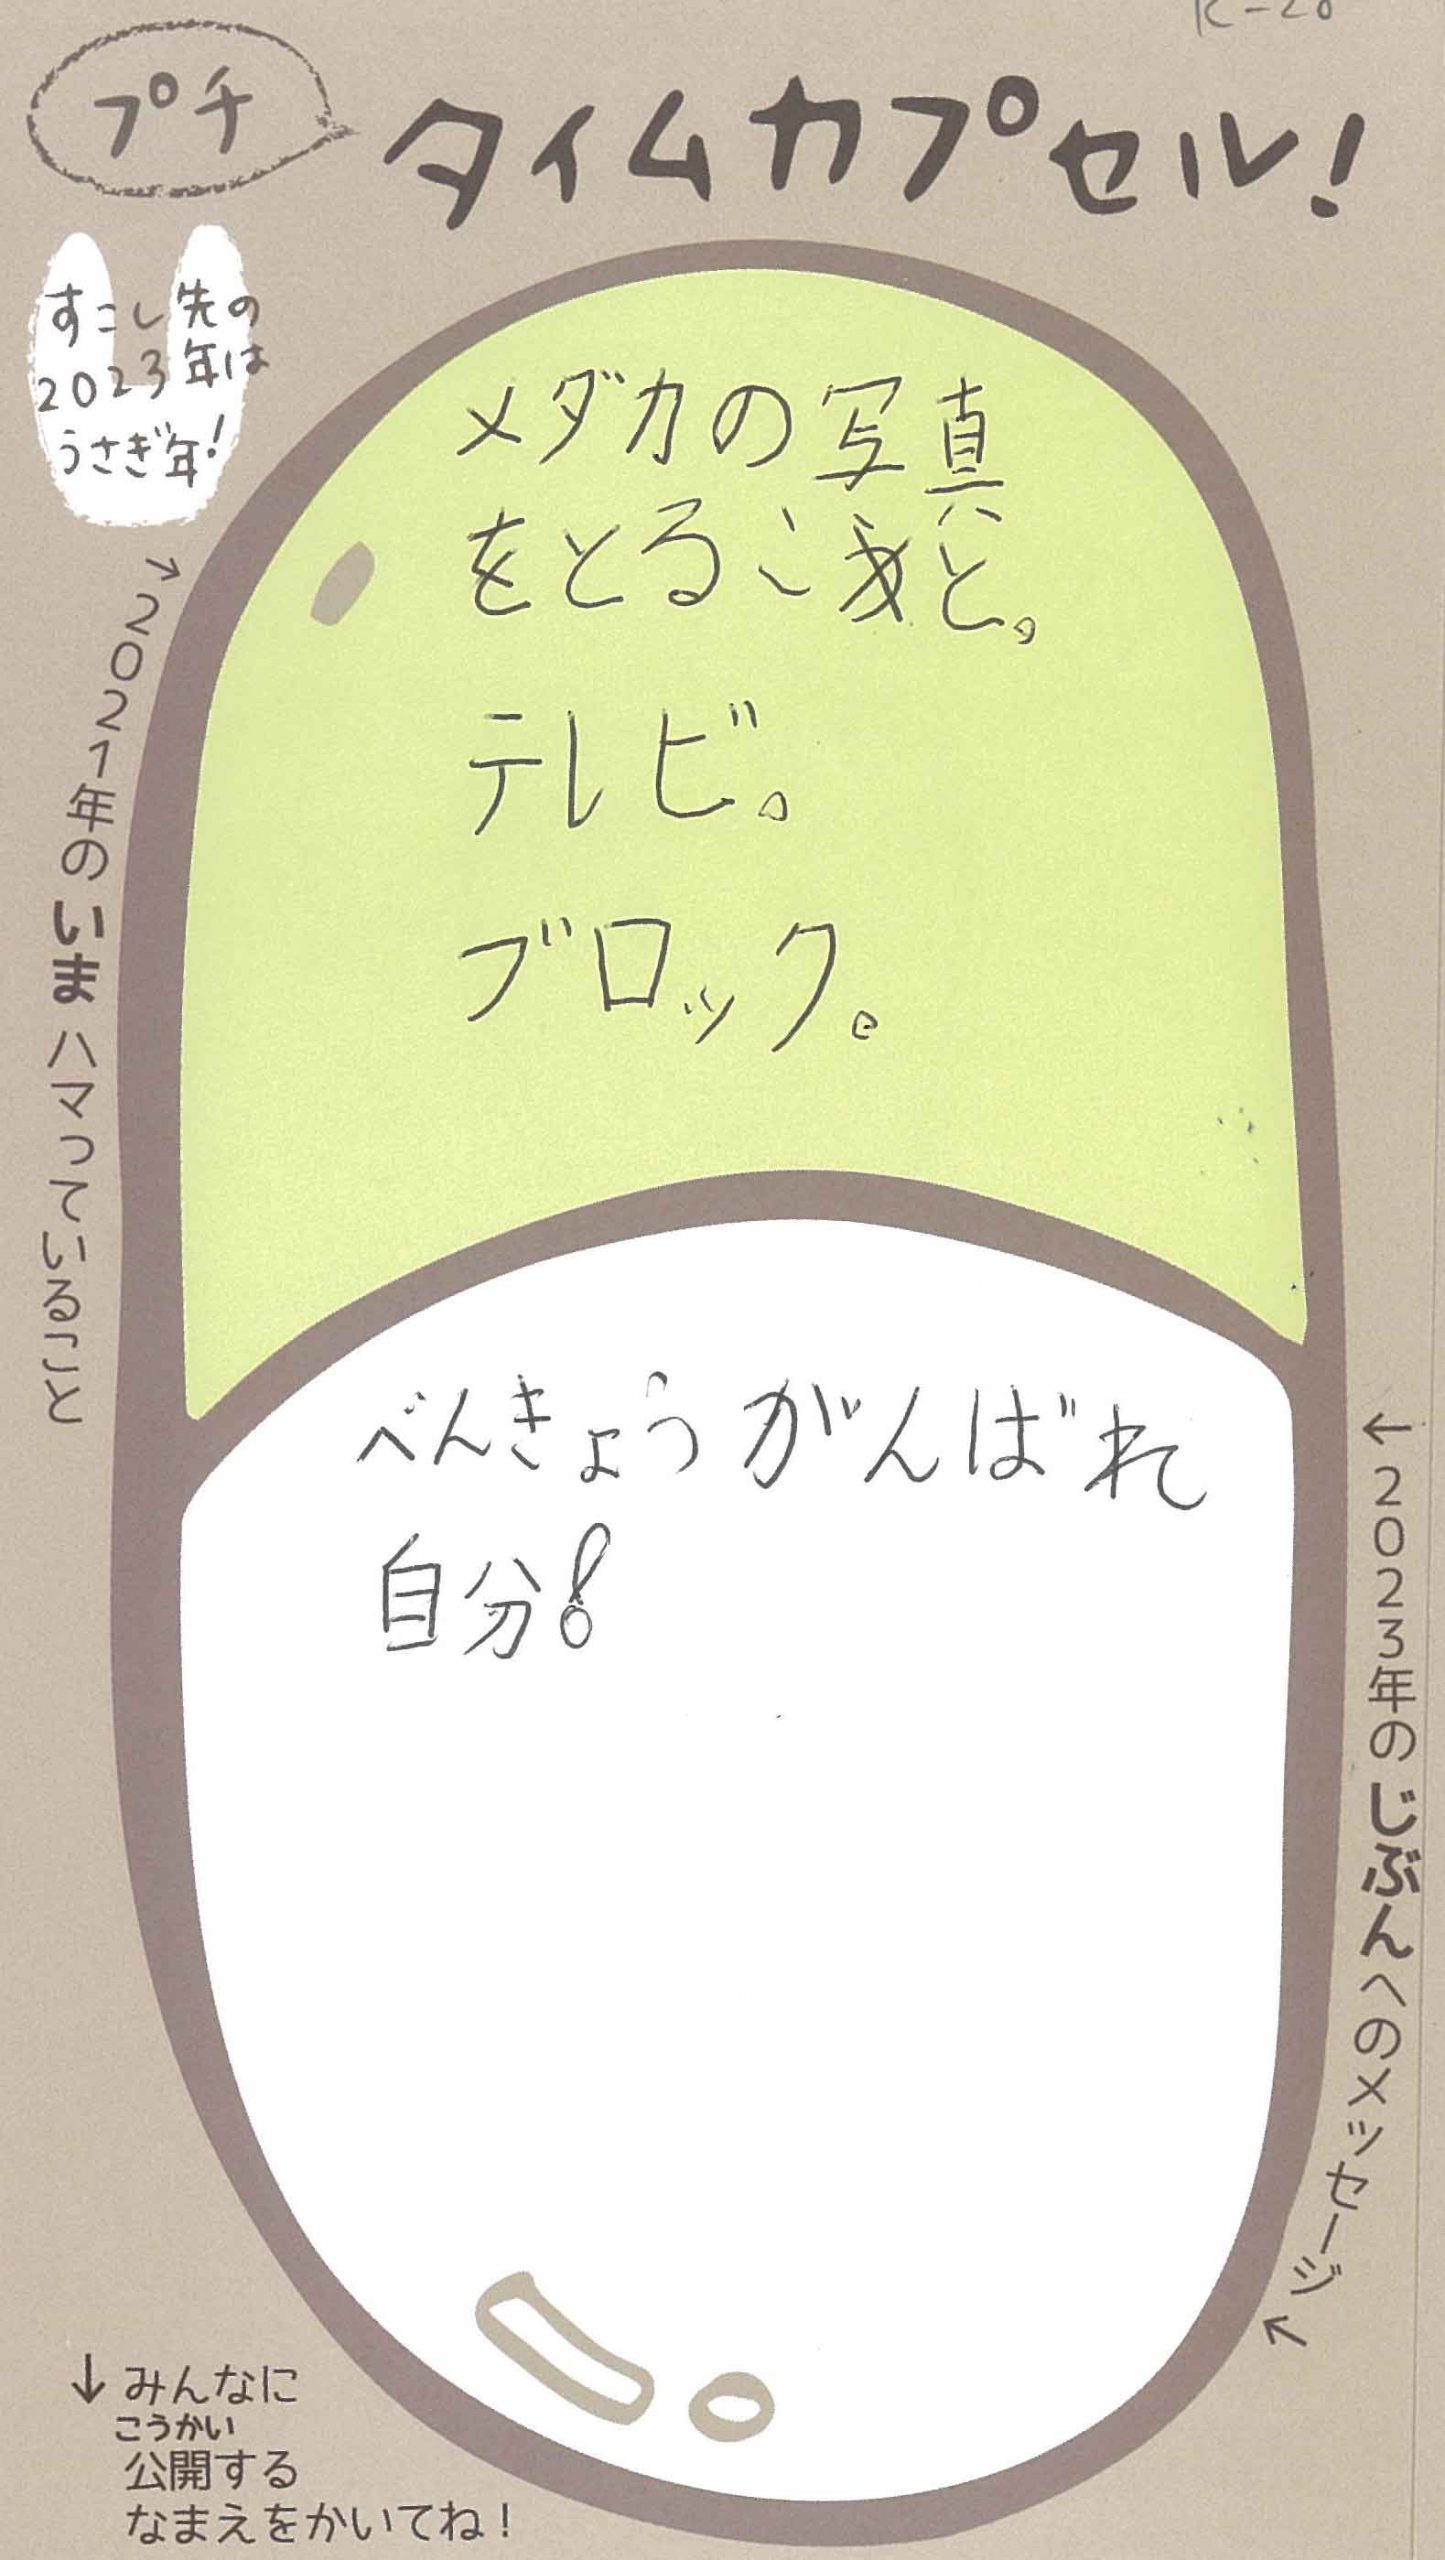 K-28
プチ
タイムカプセル!
すこし先の
2023年は
うさぎ年!
→2021年のいまハマっていること
メダカの写真
をとること。
テレビ。
ブロック。
べんきょうがんばれ
自分!
←2023年のじぶんへのメッセージ↖
↓みんなに
こうかい
公開する
なまえをかいてね!